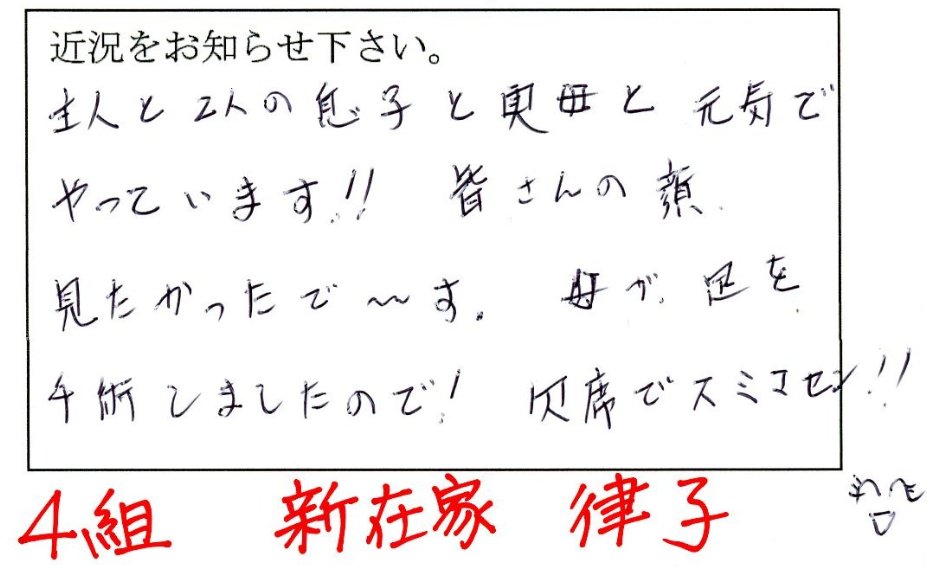 近況をお知らせ下さい。
主人と2人の息子と実母と元気で
やっています!! 皆さんの顔
見たかったで〜す。 母が足を
手術しましたので! 欠席でスミマセン!!
4組 新在家 律子